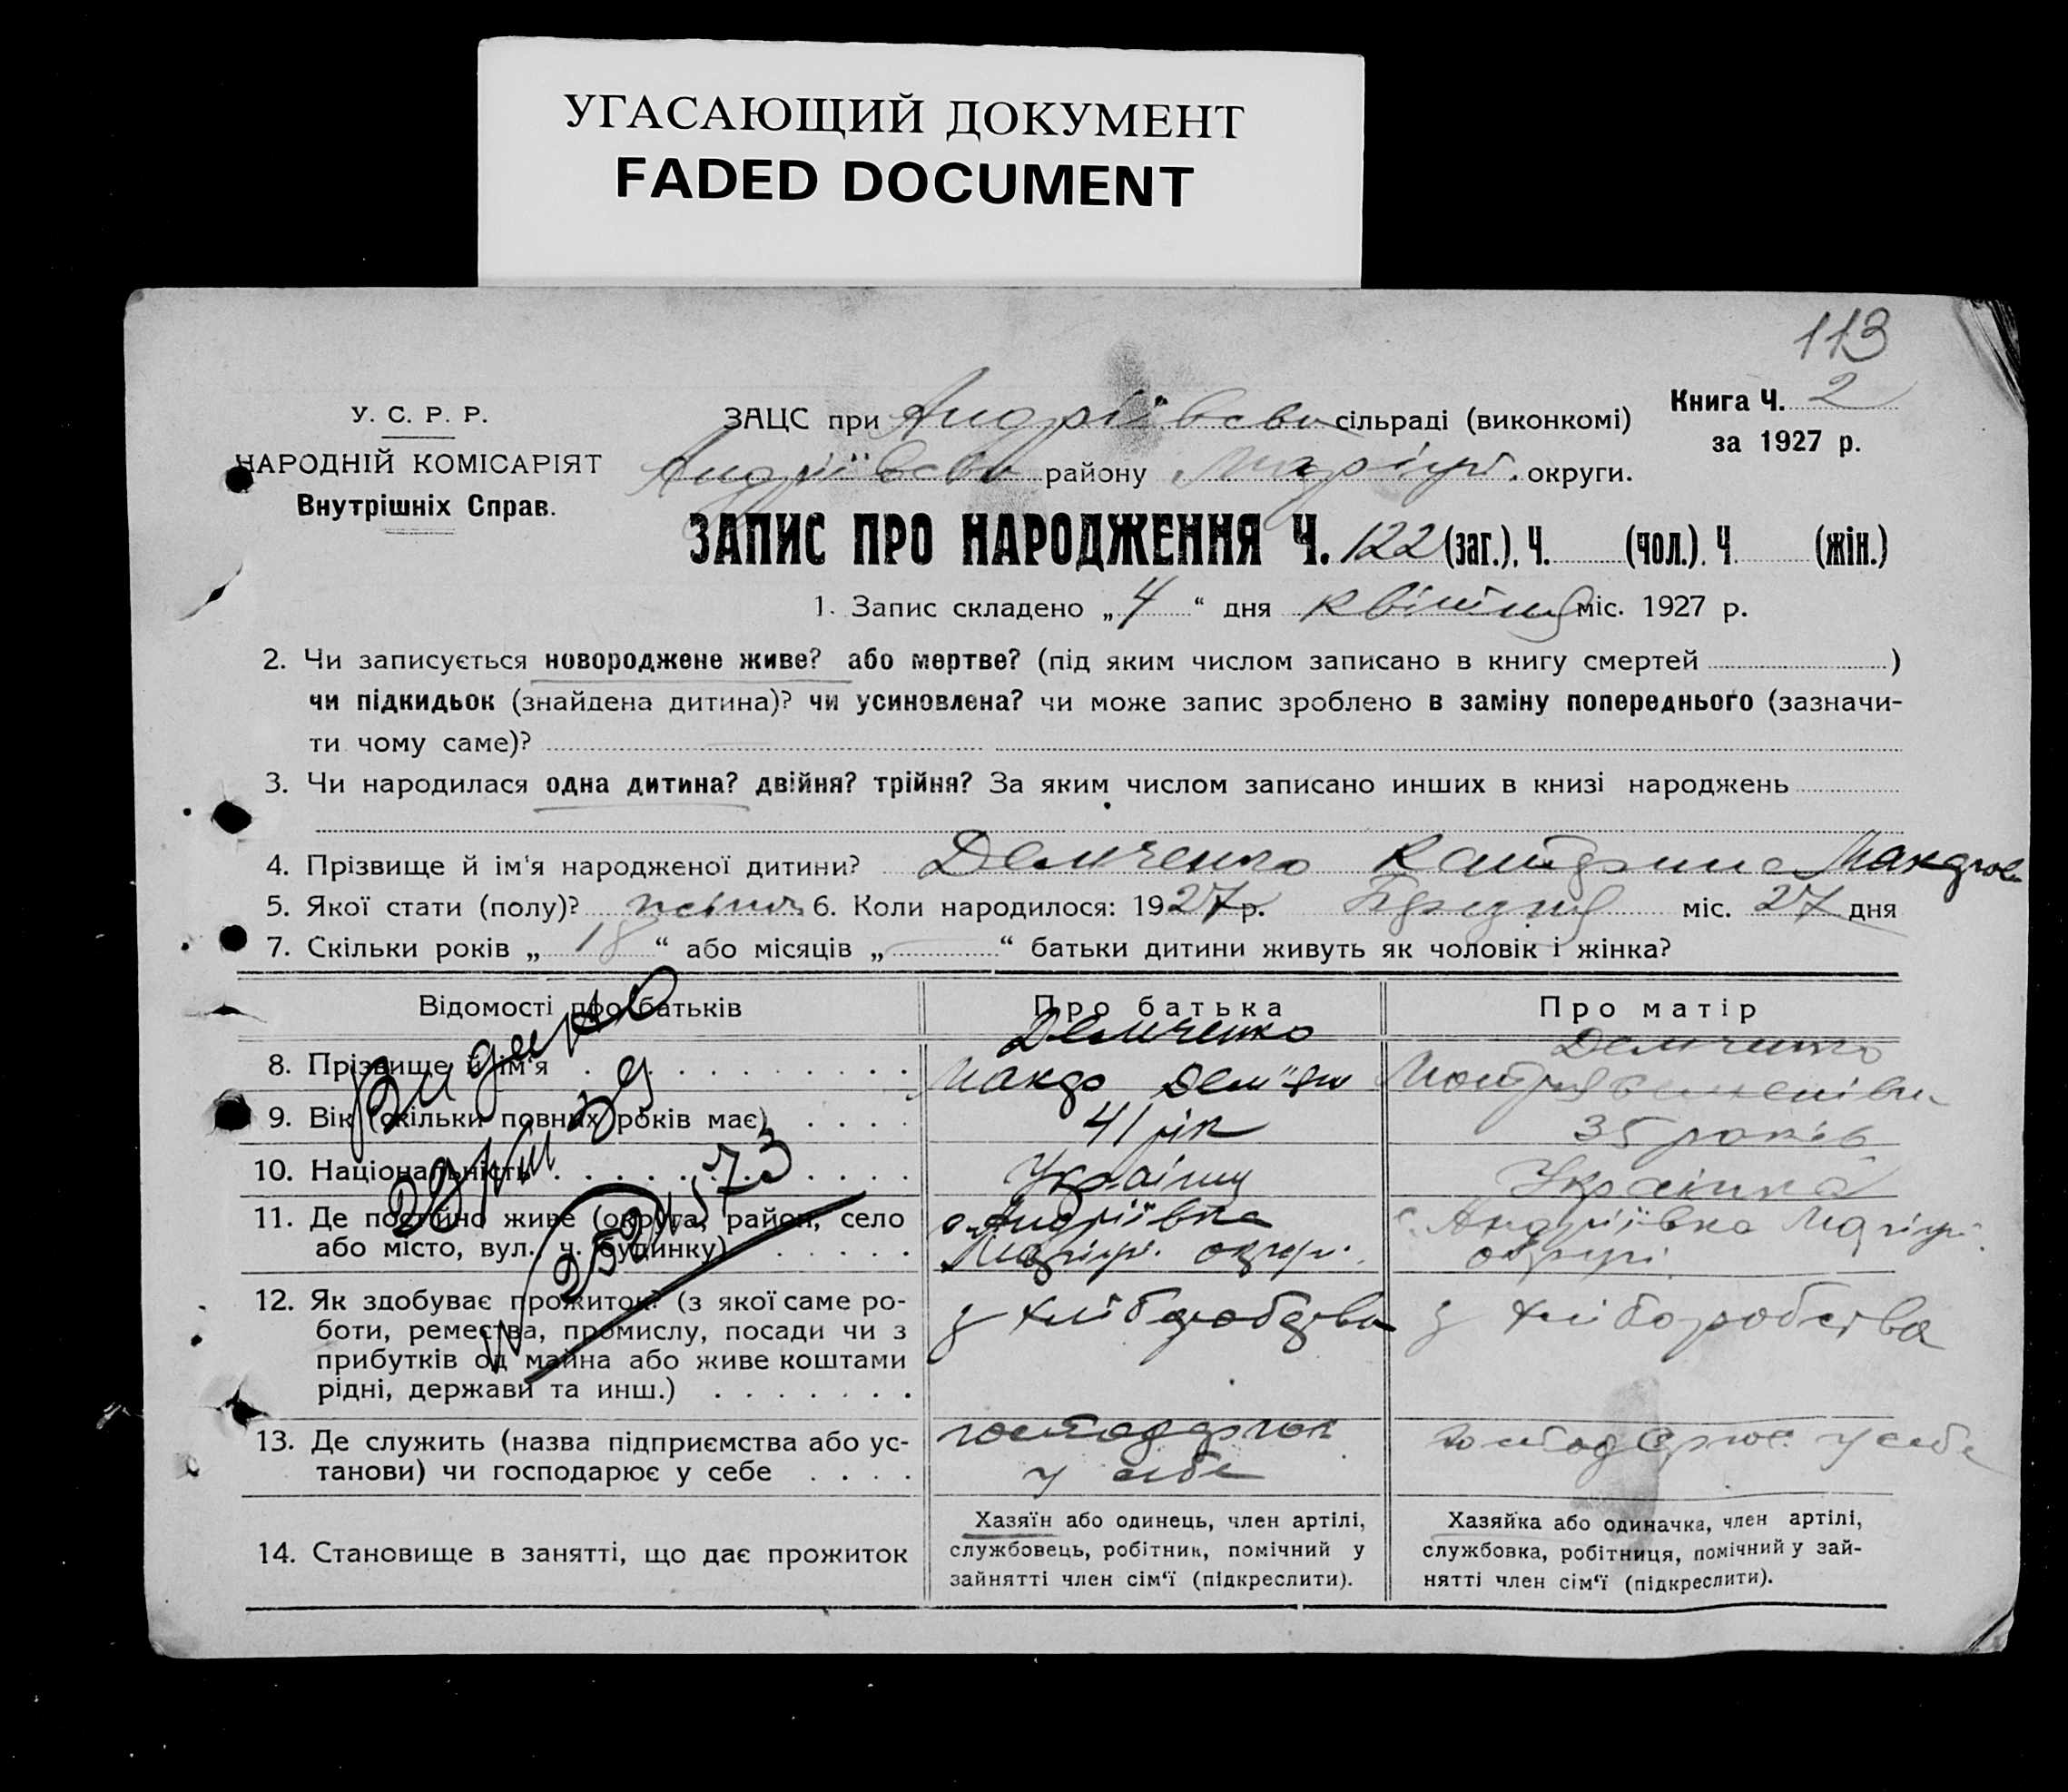 УГАСАЮЩИЙ ДОКУМЕНТ
FADED DOCUMENT
113
У. С. Р. Р.
НАРОДНІЙ КОМІСАРІЯТ
Внутрішніх Справ.
ЗАЦС при Андріївськ сільраді (виконкомі)
Андріївськ району Маріуп. округи.
Книга Ч. 2
за 1927 р.
ЗАПИС ПРО НАРОДЖЕННЯ Ч. 122 (заг.), Ч. (чол.). Ч (жін.)
1. Запис складено „ 4 “ дня квітня міс. 1927 р.
2. Чи записується новороджене живе? або мертве? (під яким числом записано в книгу смертей )
чи підкидьок (знайдена дитина)? чи усиновлена? чи може запис зроблено в заміну попереднього (зазначи-
ти чому саме)?
3. Чи народилася одна дитина? двійня? трійня? За яким числом записано инших в книзі народжень
4. Прізвище й ім‘я народженої дитини? Демченко Катерина
5. Якої стати (полу)? жіноч. 6. Коли народилося: 1927 р. Березня міс. 27 дня
7. Скільки років „ 18 “ або місяців „ “ батьки дитини живуть як чоловік і жінка?
Відомості про батьків
Про батька
Про матір
8. Прізвище й ім‘я
Демченко
Демченко
9. Вік (скільки повних років має)
41 рік
35 років
10. Національність
Українец
Українка
11. Де постійно живе (округа, район, село
або місто, вул., ч. будинку)
с. Андріївка
Маріуп. округи.
с. Андріївка Маріуп.
округи.
12. Як здобуває прожиток? (з якої саме ро-
боти, ремества, промислу, посади чи з
прибутків од майна або живе коштами
рідні, держави та инш.)
з хліборобства
з хліборобства
13. Де служить (назва підприємства або ус-
танови) чи господарює у себе
господарює
у себе
господарює у себе
14. Становище в занятті, що дає прожиток
Хазяїн або одинець, член артілі,
службовець, робітник, помічний у
зайнятті член сім‘ї (підкреслити).
Хазяйка або одиначка, член артілі,
службовка, робітниця, помічний у зай-
нятті член сім‘ї (підкреслити).